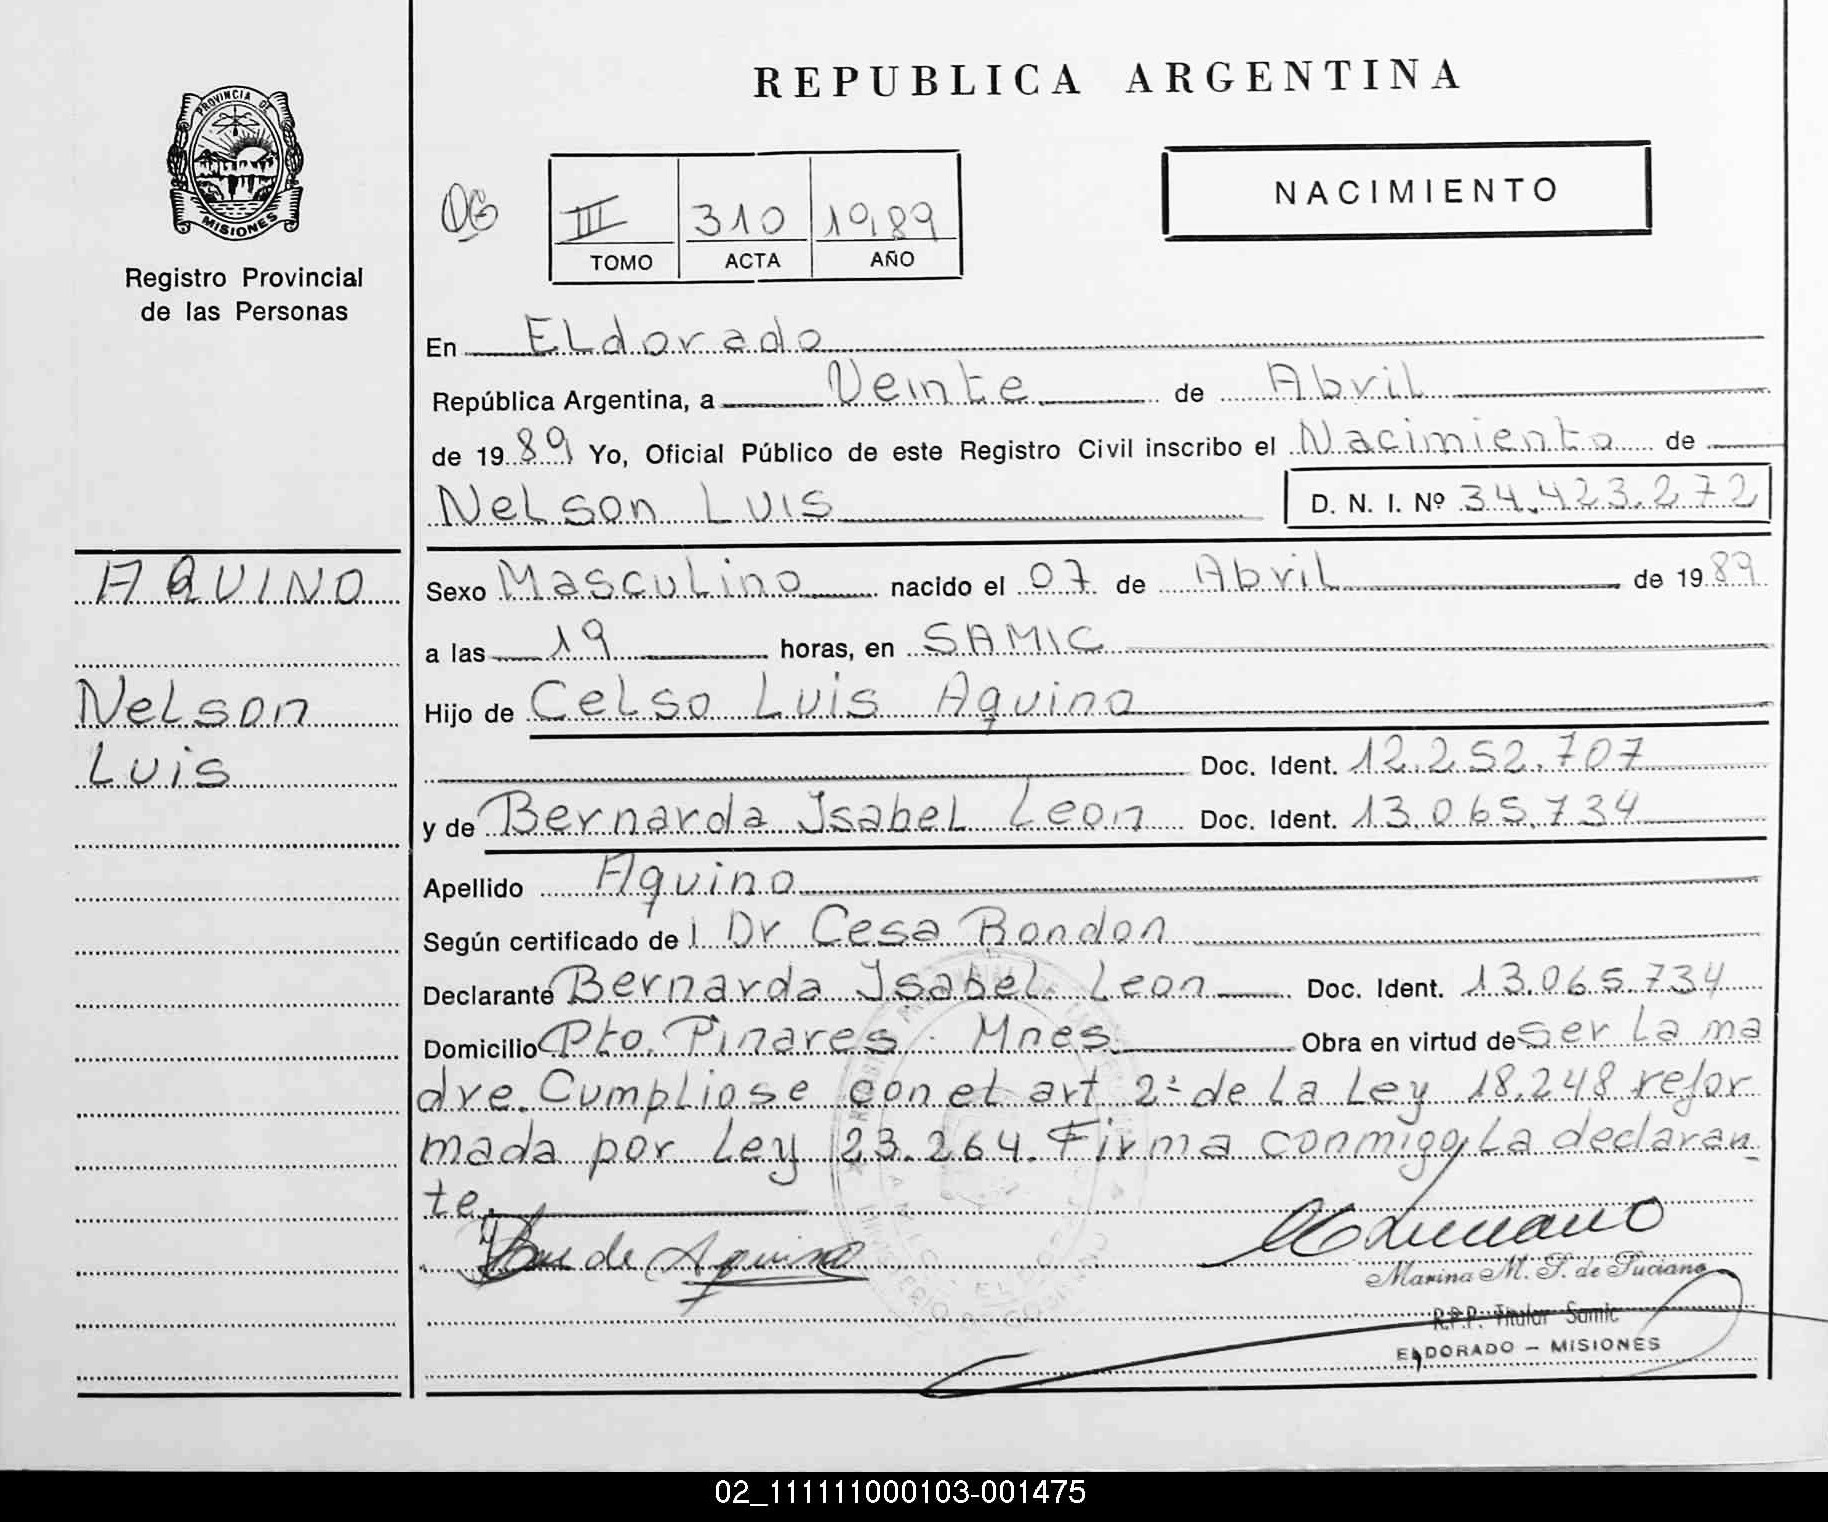 REPUBLICA ARGENTINA
PROVINCIA DE
MISIONES
Registro Provincial
de las Personas
NACIMIENTO
III 310 1989
TOMO ACTA AÑO
En ELdorado
República Argentina, a Veinte de Abril
de 1989 Yo, Oficial Público de este Registro Civil inscribo el Nacimiento de
NeLson Luis D. N. I. Nº 34.423.272
AQUINO
NeLson
Luis
Sexo MascuLino nacido el 07 de AbriL de 1989
a las 19 horas, en SAMIC
Hijo de CeLso Luis Aquino
Doc. Ident. 12.252.707
y de Bernarda IsabeL Leon Doc. Ident. 13.065.734
Apellido Aquino
Según certificado de l Dr Cesa Rondon
Declarante Bernarda IsabeL Leon Doc. Ident. 13.065.734
Domicilio Pto. Pinares. Mnes. Obra en virtud de ser La ma
dre. CumpLiose con eL art 2º de La Ley 18.248 refor
mada por Ley 23.264. Firma conmigo, La declaran
te.
de Aquino
Marina M. F. de Luciano
R.P.P. Titular Samic
ELDORADO – MISIONES
02_111111000103-001475